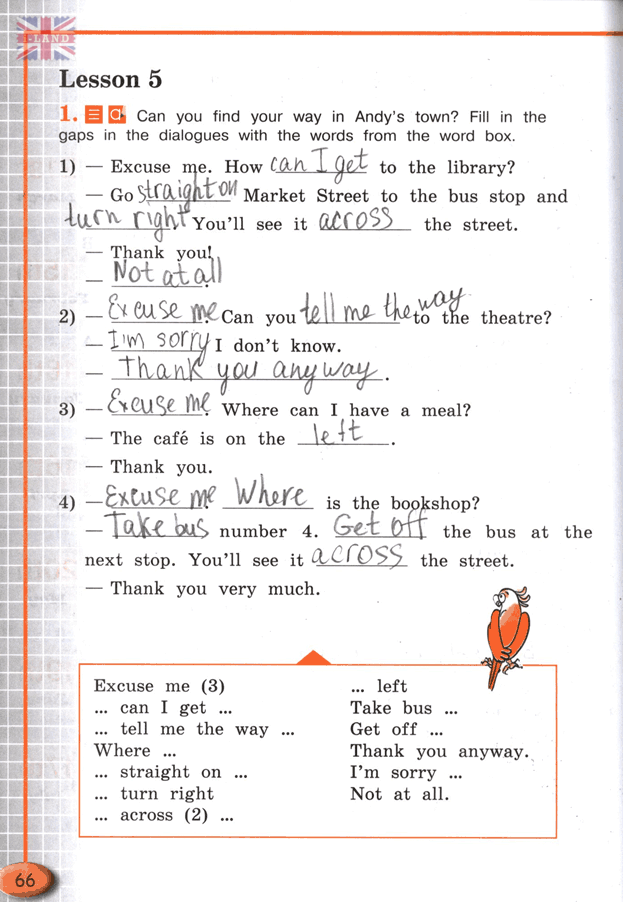 I-LAND
Lesson 5
1. Can you find your way in Andy's town? Fill in the
gaps in the dialogues with the words from the word box.
1) — Excuse me. How can I get to the library?
— Go straight on Market Street to the bus stop and
turn right You'll see it across the street.
— Thank you!
— Not at all
2) — Excuse me. Can you tell me the way to the theatre?
— I'm sorry I don't know.
— Thank you anyway.
3) — Excuse me. Where can I have a meal?
— The café is on the left.
— Thank you.
4) — Excuse me Where is the bookshop?
— Take bus number 4. Get off the bus at the
next stop. You'll see it across the street.
— Thank you very much.
Excuse me (3)
... can I get ...
... tell me the way ...
Where ...
... straight on ...
... turn right
... across (2) ...
... left
Take bus ...
Get off ...
Thank you anyway.
I'm sorry ...
Not at all.
66